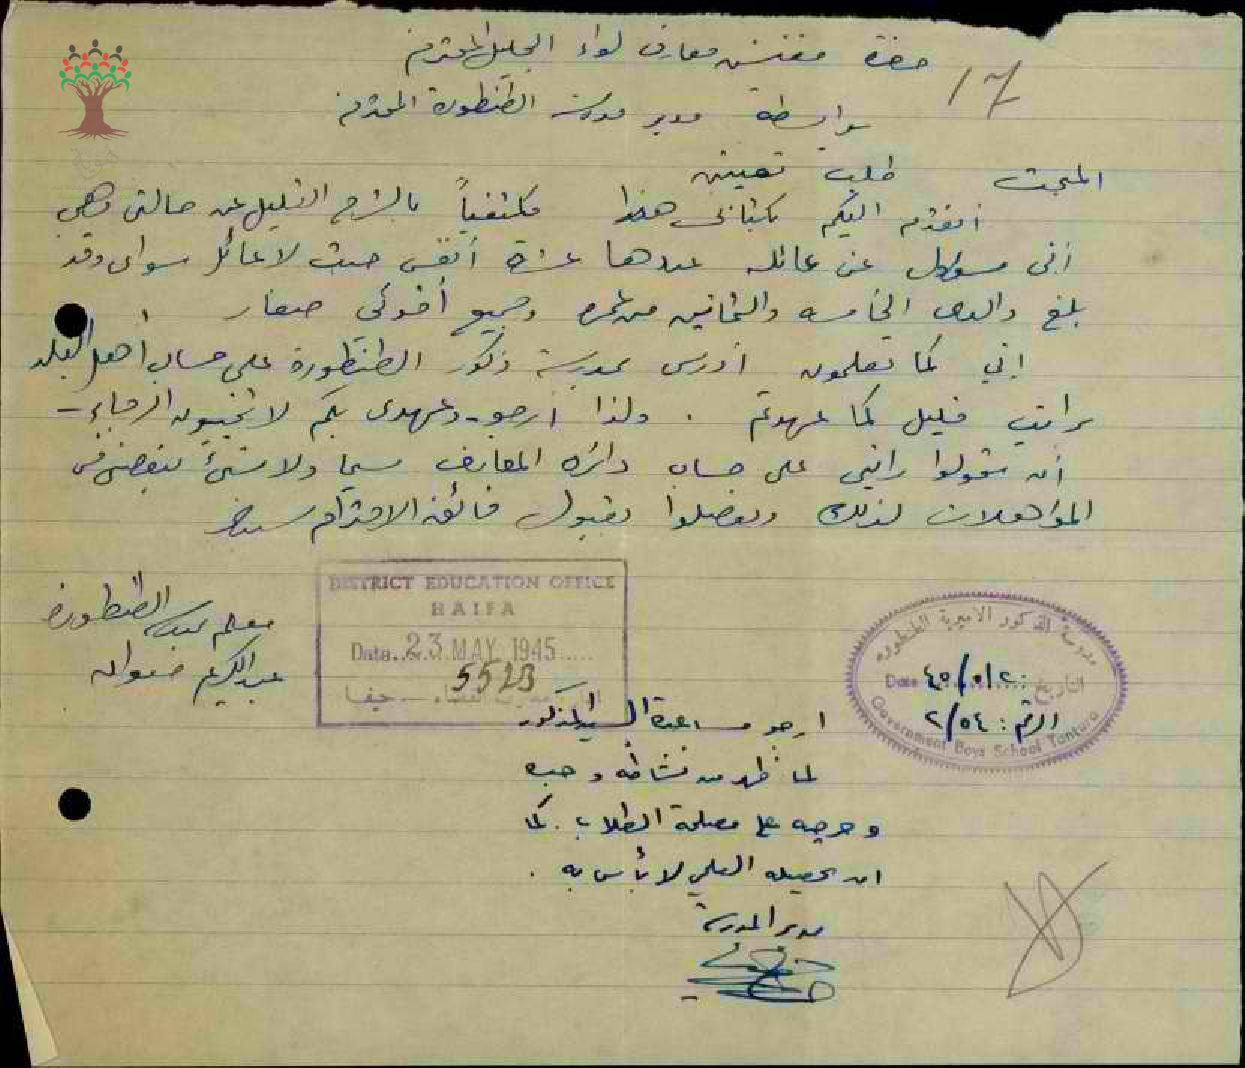 حضرة مفتش معارف لواء الجليل المحترم
17
بواسطة مدير مدرسة الطنطورة المحترم
المبحث طلب تعيين
أتقدم اليكم بكتابي هذا مكتفياً بالشرح القليل عن حالتي وهي
أني مسؤول عن عائلة عددها عشرة أنفس حيث لا عائل سواي وقد
بلغ والدي الخامسه والثمانين من عمره وجميع أخوتي صغار .
اني كما تعلمون أدرس بمدرسة ذكور الطنطورة على حساب أهل البلد
براتب قليل كما عهدتم . ولذا أرجو - وعهدي بكم لا تخيبون الرجاء -
أن تحولوا راتبي على حساب دائرة المعارف سيما ولا شيء ينقصني من
المؤهلات لذلك وتفضلوا بقبول فائق الاحترام سيدي
معلم بمدرسة الطنطورة
عبد الكريم
DISTRICT EDUCATION OFFICE
HAIFA
Date 23 MAY 1945
5523
حيفا
مدرسة الذكور الاميرية الطنطوره
Date ٤٥/٥/٢٠ التاريخ
الرقم : ٢/٥٤
Government Boys School Tantura
ارجو مساعدة السيد المذكور
لما ظهر من نشاطه وحبه
وحرصه على مصلحة الطلاب . كما
ان تحصيله العلمي لا بأس به .
مدير المدرسة